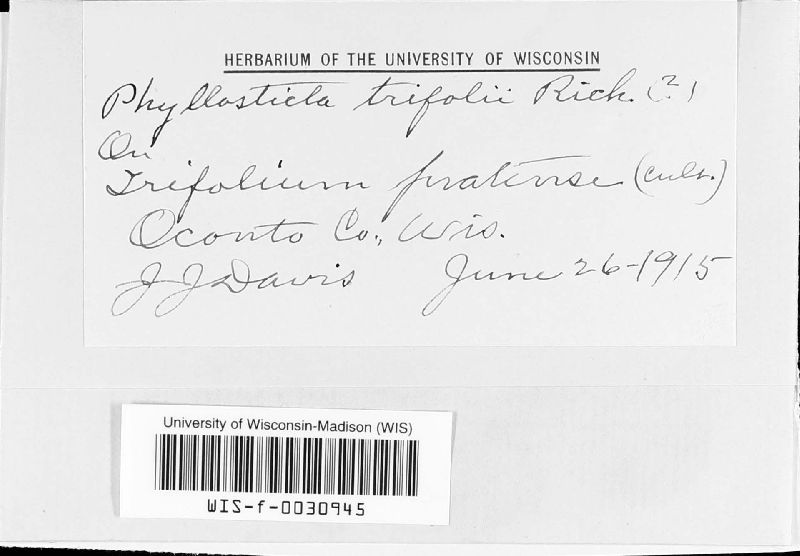 HERBARIUM OF THE UNIVERSITY OF WISCONSIN
Phyllosticta trifolii Rich. (?)
On
Trifolium pratense (cult.)
Oconto Co., Wis.
J J Davis June 26-1915
University of Wisconsin-Madison (WIS)
WIS-f-0030945